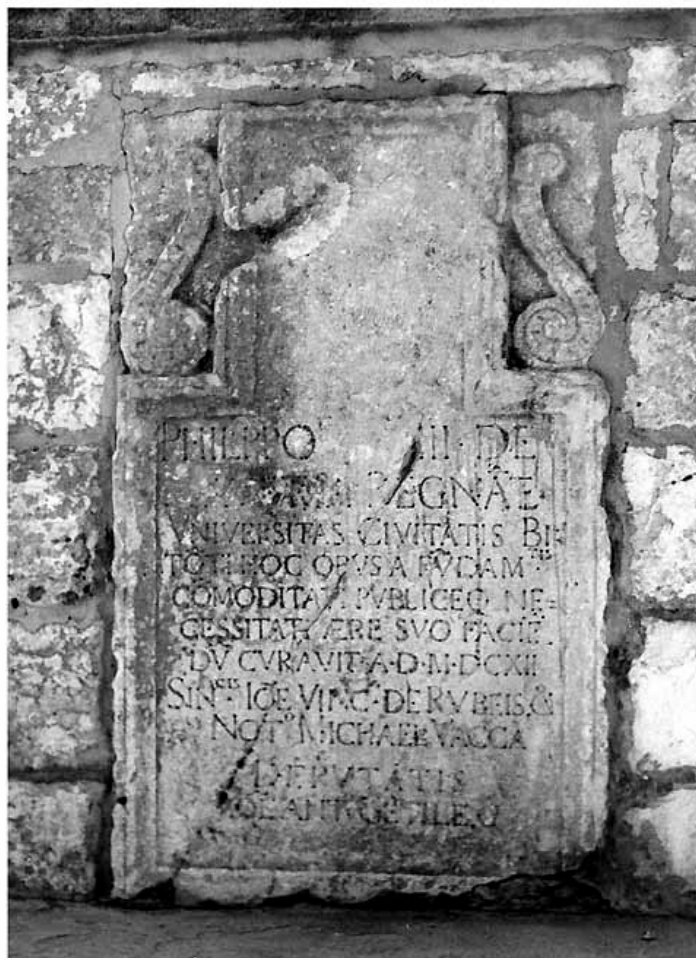 PHILIPPO III · DE
REGNÃE ·
VNIVERSITAS CIVITATIS BI-
TŌTI HOC OPVS A FŪDAM.TIS
CŌMODITATI PVBLICEQ NE=
CESSITATI ÆRE SVO FACIĒ
DŪ CVRAVIT · A · D · M · DCXII
SIN.CIS IOE VINC · DE RVBEIS, &
NOT.O MICHAELE VACCA
DEPVTATIS